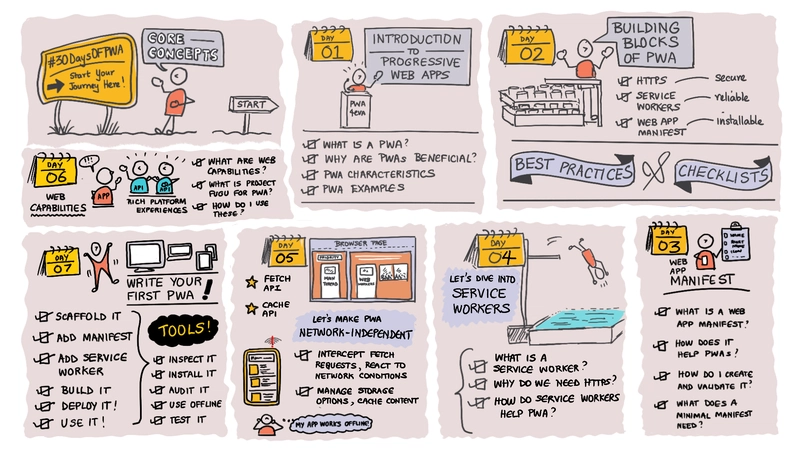 #30DaysOFPWA
Start Your
Journey Here!
CORE
CONCEPTS
START
DAY
01
INTRODUCTION
TO
PROGRESSIVE
WEB APPS
PWA
4EVA
WHAT IS A PWA?
WHY ARE PWAs BENEFICIAL?
PWA CHARACTERISTICS
PWA EXAMPLES
DAY
02
BUILDING
BLOCKS
OF PWA
HTTPS secure
SERVICE
WORKERS reliable
WEB APP
MANIFEST installable
BEST PRACTICES & CHECKLISTS
DAY
03
WEB
APP
MANIFEST
WHAT IS A WEB
APP MANIFEST?
HOW DOES IT
HELP PWAs?
HOW DO I CREATE
AND VALIDATE IT?
WHAT DOES A
MINIMAL MANIFEST
NEED?
DAY
04
LET'S DIVE INTO
SERVICE
WORKERS
WHAT IS A
SERVICE WORKER?
WHY DO WE NEED HTTPS?
HOW DO SERVICE WORKERS
HELP PWA?
DAY
05
BROWSER PAGE
PRIORITY
MAIN
THREAD
WEB
WORKERS
FETCH
API
CACHE
API
LET'S MAKE PWA
NETWORK-INDEPENDENT
INTERCEPT FETCH
REQUESTS, REACT TO
NETWORK CONDITIONS
MANAGE STORAGE
OPTIONS, CACHE CONTENT
MY APP WORKS OFFLINE!
DAY
06
WEB
CAPABILITIES
!!!
APP
API
API
RICH PLATFORM
EXPERIENCES
WHAT ARE WEB
CAPABILITIES?
WHAT IS PROJECT
FUGU FOR PWA?
HOW DO I USE
THESE?
DAY
07
WRITE YOUR
FIRST PWA!
SCAFFOLD IT
ADD MANIFEST
ADD SERVICE
WORKER
BUILD IT
DEPLOY IT!
USE IT!
TOOLS!
INSPECT IT
INSTALL IT
AUDIT IT
USE OFFLINE
TEST IT